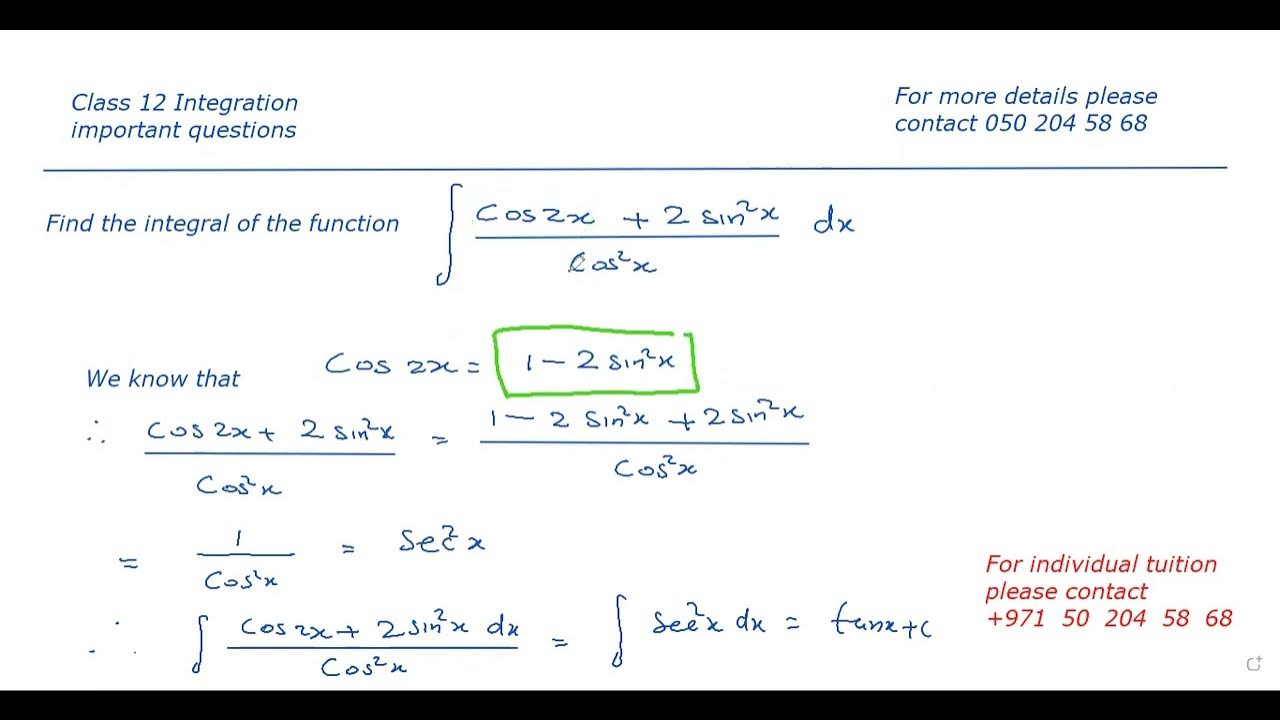 Class 12 Integration
important questions
For more details please
contact 050 204 58 68
Find the integral of the function ∫ (cos2x + 2 sin²x)/(cos²x) dx
We know that Cos 2x = 1 – 2 sin²x
∴ (cos2x + 2 sin²x)/(cos²x) = (1 – 2 sin²x + 2 sin²x)/(cos²x)
= 1/(cos²x) = sec²x
∴ ∫ (cos2x + 2 sin²x dx)/(cos²x) = ∫ sec²x dx = tanx + c
For individual tuition
please contact
+971 50 204 58 68